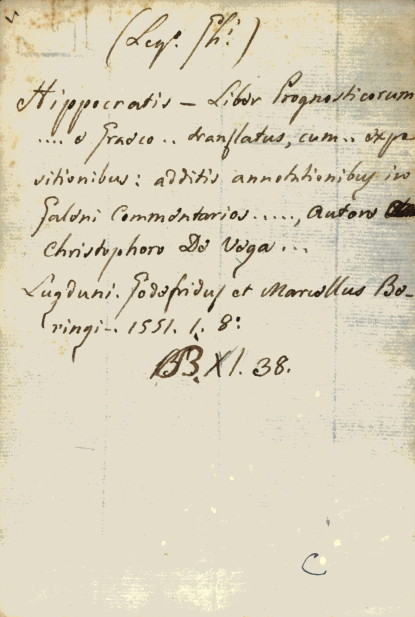 (Leg.ᵉ Ph.ˡ)
Hippocratis – Liber Prognosticorum
.... e Graeco .. translatus, cum .. expo
sitionibus: additis annotationibus in
Galeni Commentarios ....., Autore
Christophoro De Vega ...
Lugduni. Godefridus et Marcellus Be-
ringi-. 1551. 1. 8º
BB XI. 38.
C